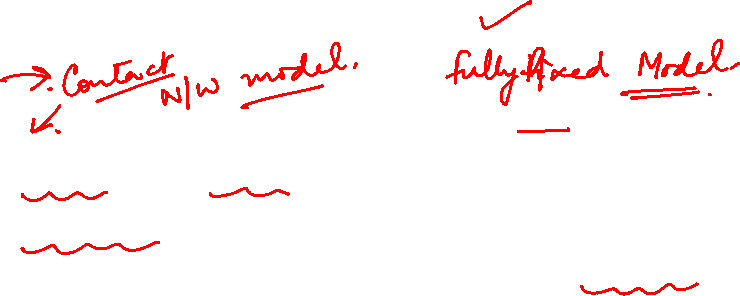 Contact N/W model.
Fully Mixed Model.